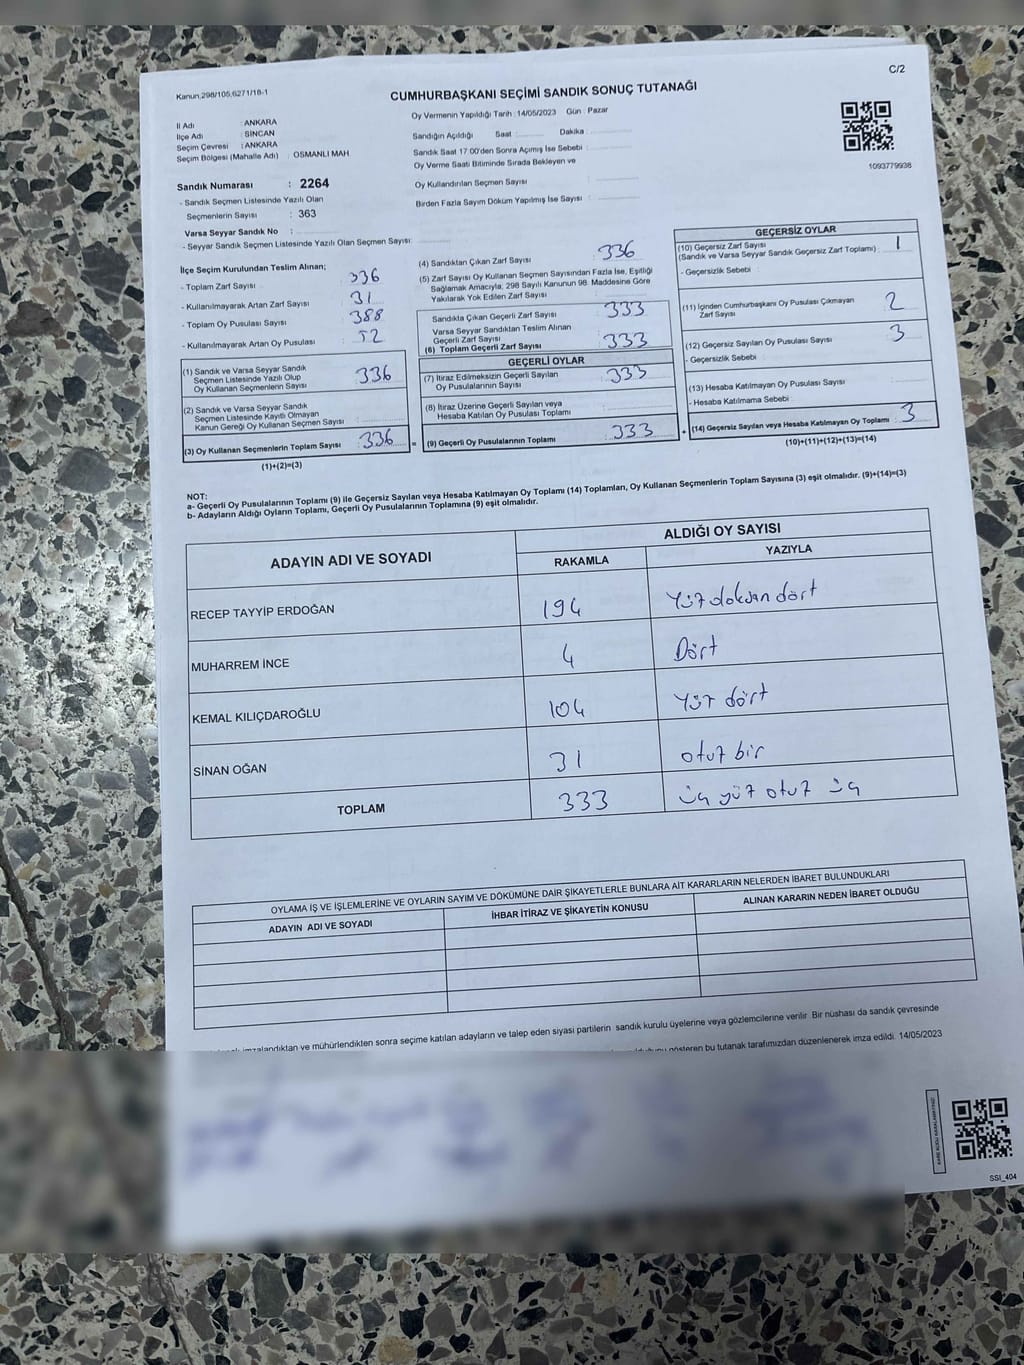 C/2
Kanun,298/105,6271/18-1
CUMHURBAŞKANI SEÇİMİ SANDIK SONUÇ TUTANAĞI
İl Adı : ANKARA
İlçe Adı : SİNCAN
Seçim Çevresi : ANKARA
Seçim Bölgesi (Mahalle Adı) : OSMANLI MAH
Sandık Numarası : 2264
- Sandık Seçmen Listesinde Yazılı Olan
Seçmenlerin Sayısı : 363
Varsa Seyyar Sandık No :
- Seyyar Sandık Seçmen Listesinde Yazılı Olan Seçmen Sayısı:
Oy Vermenin Yapıldığı Tarih : 14/05/2023 Gün : Pazar
Sandığın Açıldığı Saat : Dakika :
Sandık Saat 17:00'den Sonra Açımış İse Sebebi :
Oy Verme Saati Bitiminde Sırada Bekleyen ve
Oy Kullandırılan Seçmen Sayısı :
Birden Fazla Sayım Döküm Yapılmış İse Sayısı :
1093779938
İlçe Seçim Kurulundan Teslim Alınan;
- Toplam Zarf Sayısı : 336
- Kullanılmayarak Artan Zarf Sayısı : 31
- Toplam Oy Pusulası Sayısı : 388
- Kullanılmayarak Artan Oy Pusulası : 52
(1) Sandık ve Varsa Seyyar Sandık
Seçmen Listesinde Yazılı Olup
Oy Kullanan Seçmenlerin Sayısı : 336
(2) Sandık ve Varsa Seyyar Sandık
Seçmen Listesinde Kayıtlı Olmayan
Kanun Gereği Oy Kullanan Seçmen Sayısı :
(3) Oy Kullanan Seçmenlerin Toplam Sayısı : 336
(1)+(2)=(3)
(4) Sandıktan Çıkan Zarf Sayısı : 336
(5) Zarf Sayısı Oy Kullanan Seçmen Sayısından Fazla İse, Eşitliği
Sağlamak Amacıyla, 298 Sayılı Kanunun 98. Maddesine Göre
Yakılarak Yok Edilen Zarf Sayısı :
Sandıkta Çıkan Geçerli Zarf Sayısı : 333
Varsa Seyyar Sandıktan Teslim Alınan
Geçerli Zarf Sayısı :
(6) Toplam Geçerli Zarf Sayısı : 333
GEÇERLİ OYLAR
(7) İtiraz Edilmeksizin Geçerli Sayılan
Oy Pusulalarının Sayısı : 333
(8) İtiraz Üzerine Geçerli Sayılan veya
Hesaba Katılan Oy Pusulası Toplamı :
= (9) Geçerli Oy Pusulalarının Toplamı : 333 +
GEÇERSİZ OYLAR
(10) Geçersiz Zarf Sayısı
(Sandık ve Varsa Seyyar Sandık Geçersiz Zarf Toplamı) : 1
- Geçersizlik Sebebi :
(11) İçinden Cumhurbaşkanı Oy Pusulası Çıkmayan
Zarf Sayısı : 2
(12) Geçersiz Sayılan Oy Pusulası Sayısı : 3
- Geçersizlik Sebebi :
(13) Hesaba Katılmayan Oy Pusulası Sayısı :
- Hesaba Katılmama Sebebi :
(14) Geçersiz Sayılan veya Hesaba Katılmayan Oy Toplamı : 3
(10)+(11)+(12)+(13)=(14)
NOT:
a- Geçerli Oy Pusulalarının Toplamı (9) ile Geçersiz Sayılan veya Hesaba Katılmayan Oy Toplamı (14) Toplamları, Oy Kullanan Seçmenlerin Toplam Sayısına (3) eşit olmalıdır. (9)+(14)=(3)
b- Adayların Aldığı Oyların Toplamı, Geçerli Oy Pusulalarının Toplamına (9) eşit olmalıdır.
ADAYIN ADI VE SOYADI ALDIĞI OY SAYISI
RAKAMLA YAZIYLA
RECEP TAYYİP ERDOĞAN 194 Yüz doksan dört
MUHARREM İNCE 4 Dört
KEMAL KILIÇDAROĞLU 104 Yüz dört
SİNAN OĞAN 31 otuz bir
TOPLAM 333 üç yüz otuz üç
OYLAMA İŞ VE İŞLEMLERİNE VE OYLARIN SAYIM VE DÖKÜMÜNE DAİR ŞİKAYETLERLE BUNLARA AİT KARARLARIN NELERDEN İBARET BULUNDUKLARI
ADAYIN ADI VE SOYADI İHBAR İTİRAZ VE ŞİKAYETİN KONUSU ALINAN KARARIN NEDEN İBARET OLDUĞU
imzalandıktan ve mühürlendikten sonra seçime katılan adayların ve talep eden siyasi partilerin sandık kurulu üyelerine veya gözlemcilerine verilir. Bir nüshası da sandık çevresinde
gösteren bu tutanak tarafımızdan düzenlenerek imza edildi. 14/05/2023
SSI_404